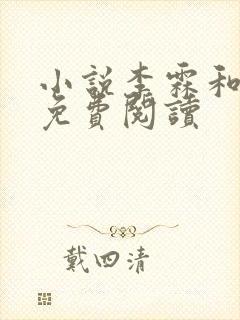 小說李霖和
免費閱讀
戴四清